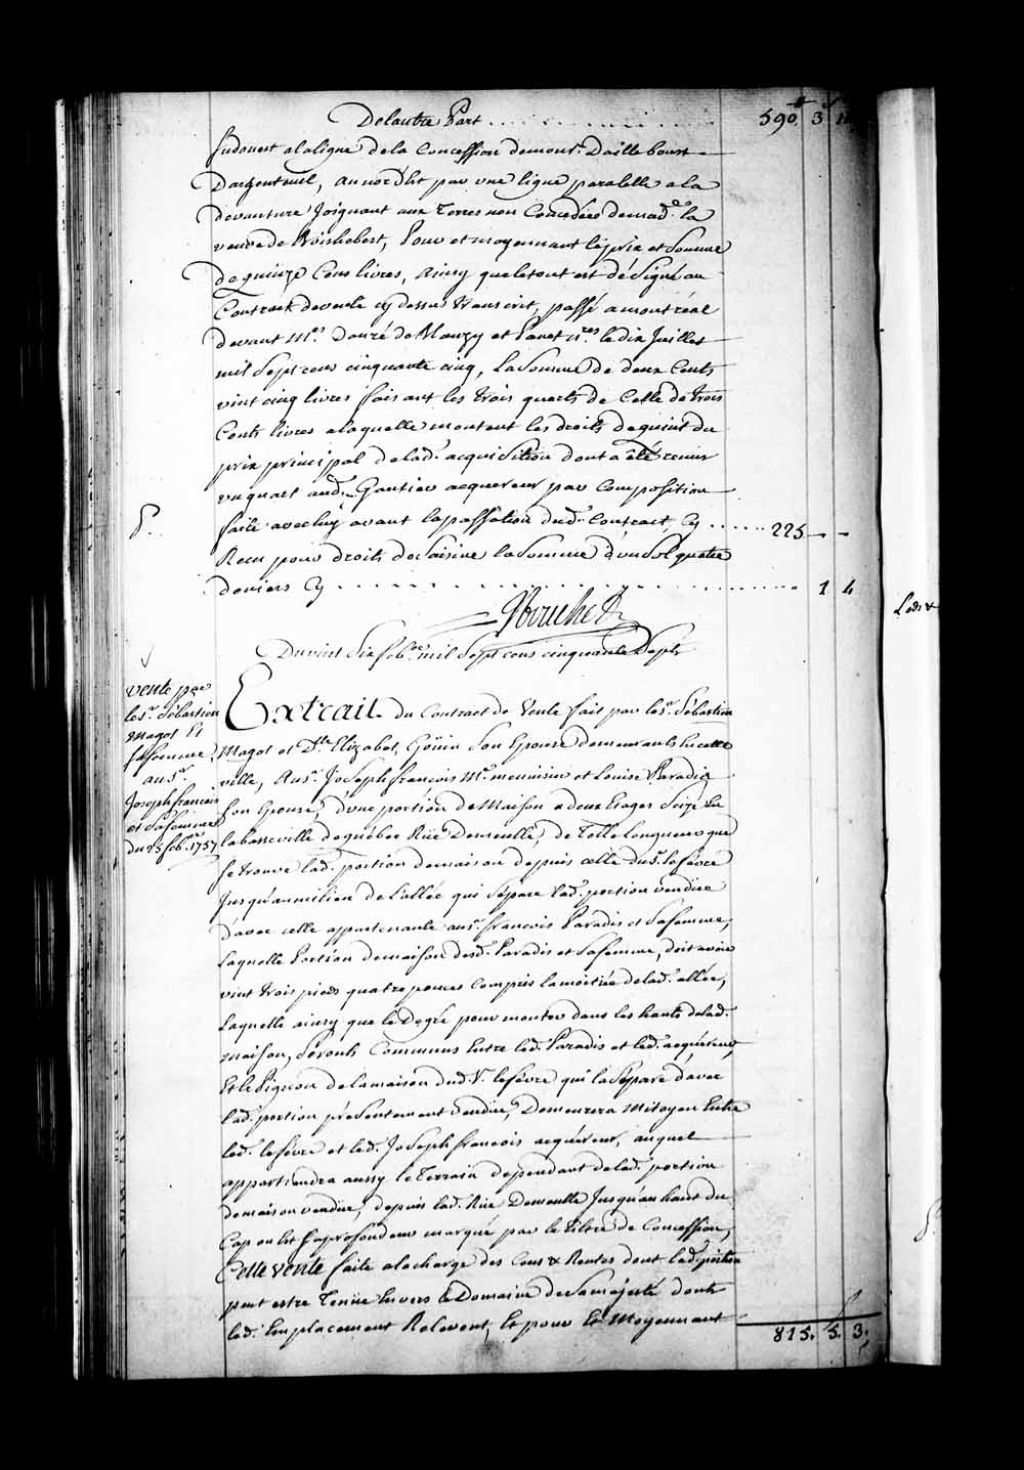 Delautre Part . . . . . . . . . . 590 3
Sudouest a la ligne de la Concession de mons.r Daillebourt
Dargenteuil, au nord Est par une ligne paralelle a la
devanture Joignant aux Terres non Concedées de mad.e la
veuve de Boishebert, Pour et moyennant le prix et Somme
De quinze Cens livres, Ainsy que le tout est désigné au
Contract de vente cy dessus transcrit, passé a montréal
devant M.es Danré de Blanzy et Panet n.res le dix Juillet
mil Sept cens cinquante cinq, La Somme de deux Cents
vint cinq livres faisant les trois quarts de Celle de trois
Cents livres a laquelle montent les droits de quint du
prix principal de lad. acquisition dont a été remis
un quart aud. Gautier acquereur par Composition
faite avec luy avant la passation dud. Contract, Cy . . . . . . 225 - -
P.
Recu pour droits de Saisine la Somme d'un Sol quatre
deniers Cy . . . . . . . . . . 1 4
Du vint Six feb.re mil Sept cens cinquante Sept
vente par
le s.r Sébastien
Magot Et
Sa femme,
au s.r
Joseph francois
et Sa femme
du 25 feb.r 1757
Extrait du Contract de Vente fait par le s.r Sébastien
Magot et D.lle Elizabet Göüin Son Epouse demeurants En cette
ville, Au s.r Joseph francois M.e menuisier et Louise Paradis
Son Epouse, d'une portion de Maison a deux Etages Seize En
la basse ville de québec Rüe Demeulle, de Telle longueur que
Se trouve lad. portion de maison depuis celle du S.r Lefévre
Jusqu'au milieu de L'allée qui Sépare lad. portion vendüe
d'avec celle appartenante au s.r francois Paradis et Sa femme,
Laquelle Portion de maison desd. Paradis et Sa femme, doit avoir
vint trois pieds quatre pouces Compris la moitiée de lad. allée,
Laquelle ainsy que le Degré pour monter dans les hauts de lad.
maison, Seronts Communs Entre led. Paradis et led. acquéreur,
Et le Pignon de la maison dud. S.r Lefévre qui la Sépare d'avec
lad. portion présentement vendüe, Demeurera Mitoyen Entre
led. Lefévre et led. Joseph francois acquéreur, auquel
appartiendra aussy le Terrain dépendant de lad. portion
de maison vendüe, depuis lad. Rüe Demeulle Jusqu'au haut du
Cap ou Est Sa profondeur marqué par le titre de Concession,
Cette vente faite a la charge des Cens & Rentes dont lad. portion
peut estre Tenüe Envers le Domaine de Sa majesté dont
led. Emplacement Relevent, Et pour Et Moyennant
815. 5. 3.